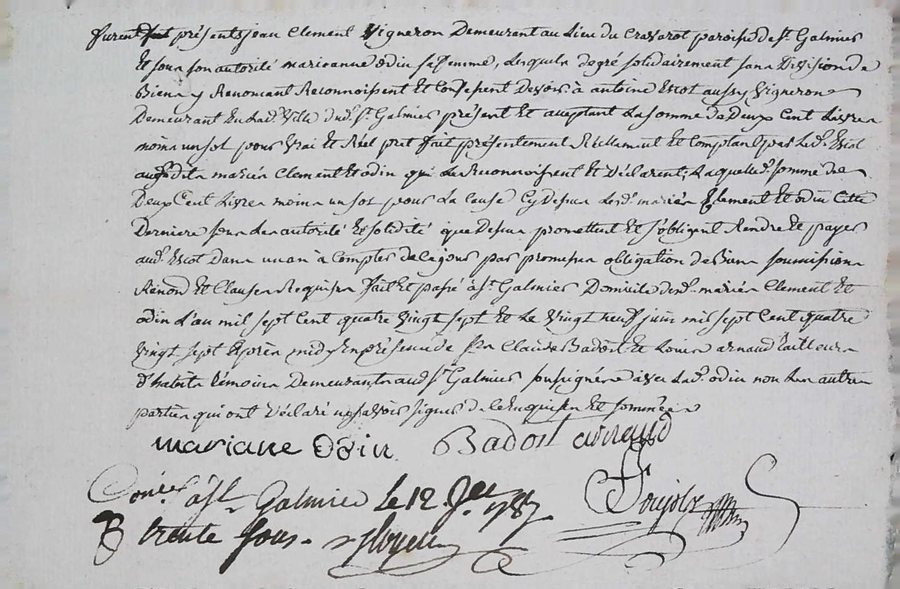 furent présents jean Clement Vigneron Demeurant au Lieu du paroisse de st Galmier
Et sous son autorité marieanne odin sa femme, Lesquels degré solidairement sans Division de
Biens y Renoncant Reconnoissent Et Confessent Devoir à antoine Escot aussy Vigneron
Demeurant En Lad. Ville dud. st Galmier présent Et acceptant La somme de Deux Cent Livres
moins un sol pour Vrai Et Réel pret fait présentement Réellement Et Comptant par Led. Escot
auxdits mariés Clement Et odin qui Le Reconnoissent Et Déclarent, Laquelle somme de
Deux Cent Livres moins un sol pour La Cause Cy Dessus Lesd. mariés Clement Et odin Cette
Derniere sous Les autorité Et solidité que Dessus promettent Et s'obligent Rendre Et payer
aud. Escot Dans un an à Compter de Ce jour par promesse obligation de Biens soumissions
Renond. Et Clauses Requises fait Et passé à st Galmier Domicile desd. mariés Clement Et
odin L'an mil sept Cent quatre Vingt sept Et Le Vingt neuf juin mil sept Cent quatre
Vingt sept après midy En présence de Claude Badost Et Louis arnaud tailleurs
d'habits témoins Demeurants aud. st Galmier soussignés avec Lad. odin non Les autres
parties qui ont Déclaré ne savoir signer de Ce Enquises Et sommées
mariane Odin Badost arnaud
Con.lé à st Galmier Le 12 1787 Soujols
R trente sous